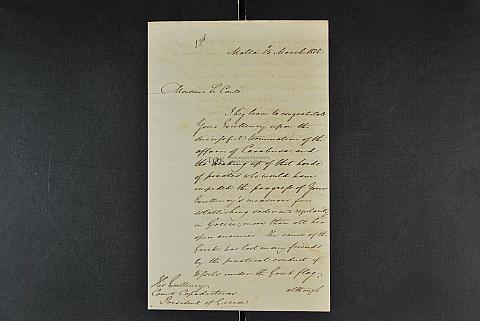 Malta 13 March 1828
Monsieur Le Comte
I beg leave to congratulate
Your Excellency upon the
successful termination of the
affairs of Carabusa and
the breaking up of that horde
of pirates who would have
impeded the progress of Your
Excellency's measures for
establishing order and regularity
in Greece, more than all her
open enemies. The cause of the
Greeks has lost many friends
by the piratical conduct of
Vessels under the Greek flag,
although
His Excellency
Count Capodistrias
President of Greece